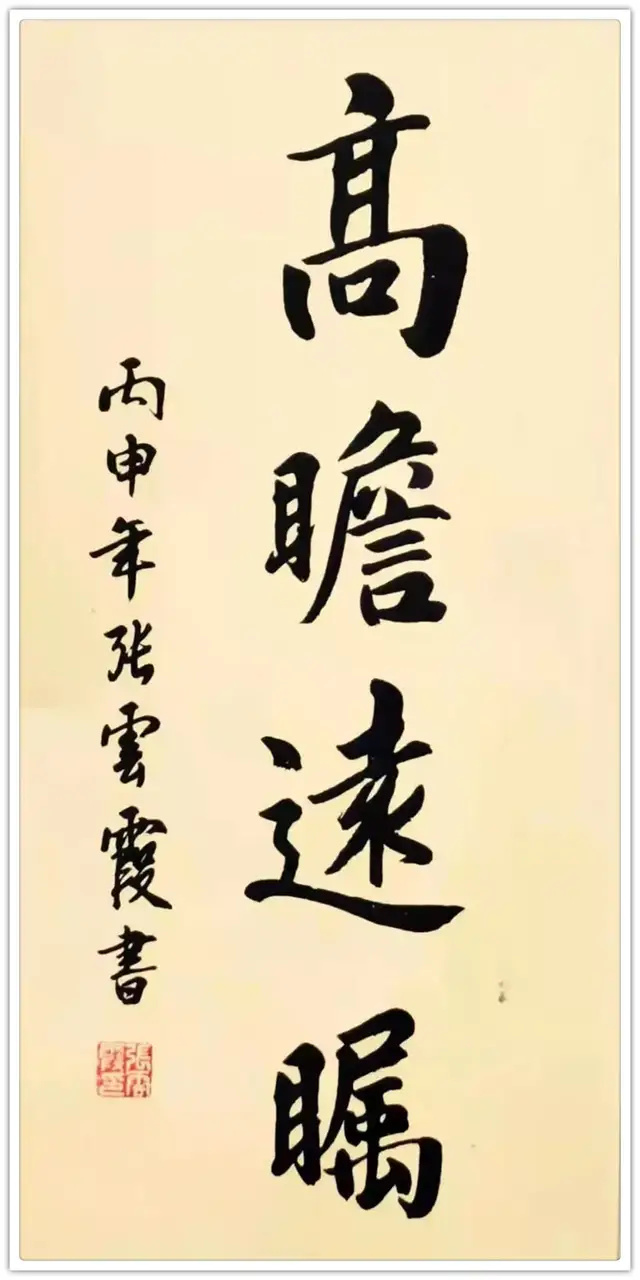 髙瞻遠矚
丙申年张雲霞書
張雲霞印